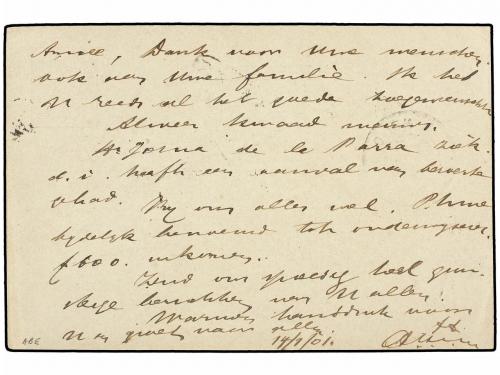 Amice, Dank voor Uwe menschen
ook van Uwe familie. Ik heb
U reeds al het goede toegewenscht
Alweer kwaad nieuws.
Hr Josua de la Parra ziek
d.i. heeft een aanval van beroerte
gehad. Bij ons alles wel.
tijdelijk benoemd tot
f 600. inkomen.
Zend ons spoedig heel gun-
stige berichten van U allen.
Warmen handdruk voor
U en groet voor allen
14/1/01.
ABE